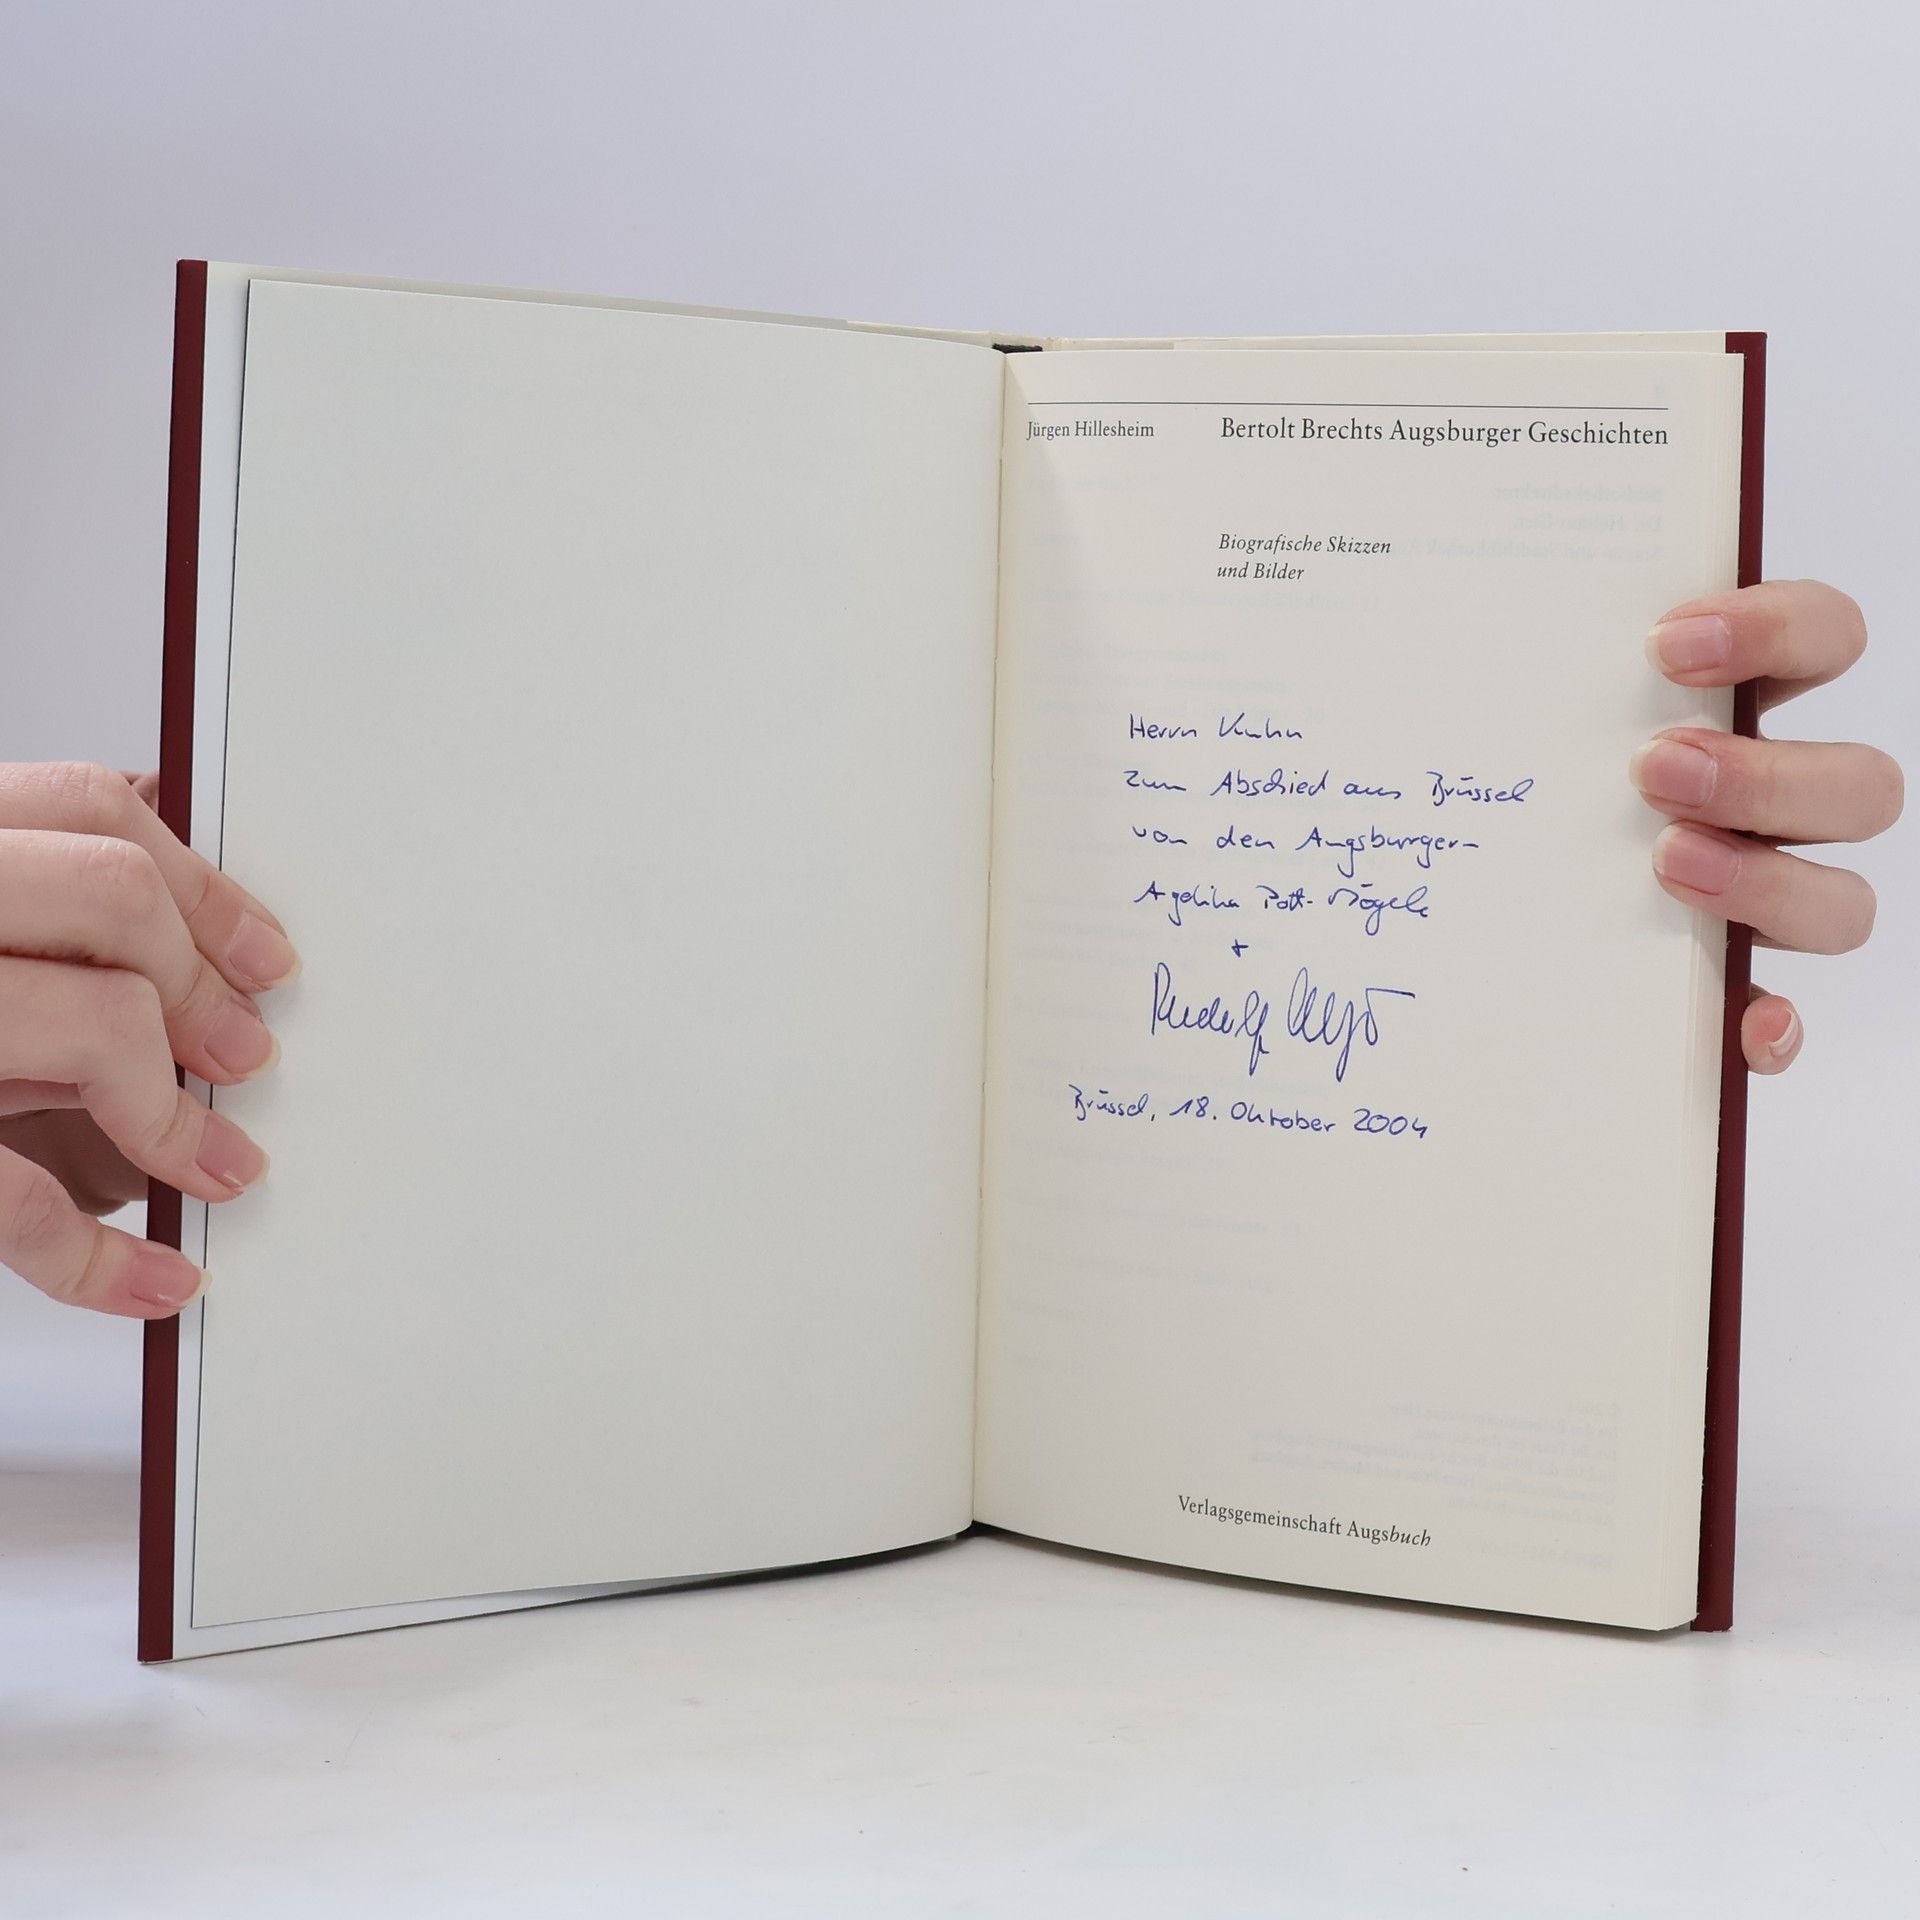 Jürgen Hillesheim
Bertolt Brechts Augsburger Geschichten
Biografische Skizzen
und Bilder
Herrn Kuhn
zum Abschied aus Brüssel
von den Augsburger-
Pott-Mögele
+
Rudolf
Brüssel, 18. Oktober 2004
Verlagsgemeinschaft Augsbuch